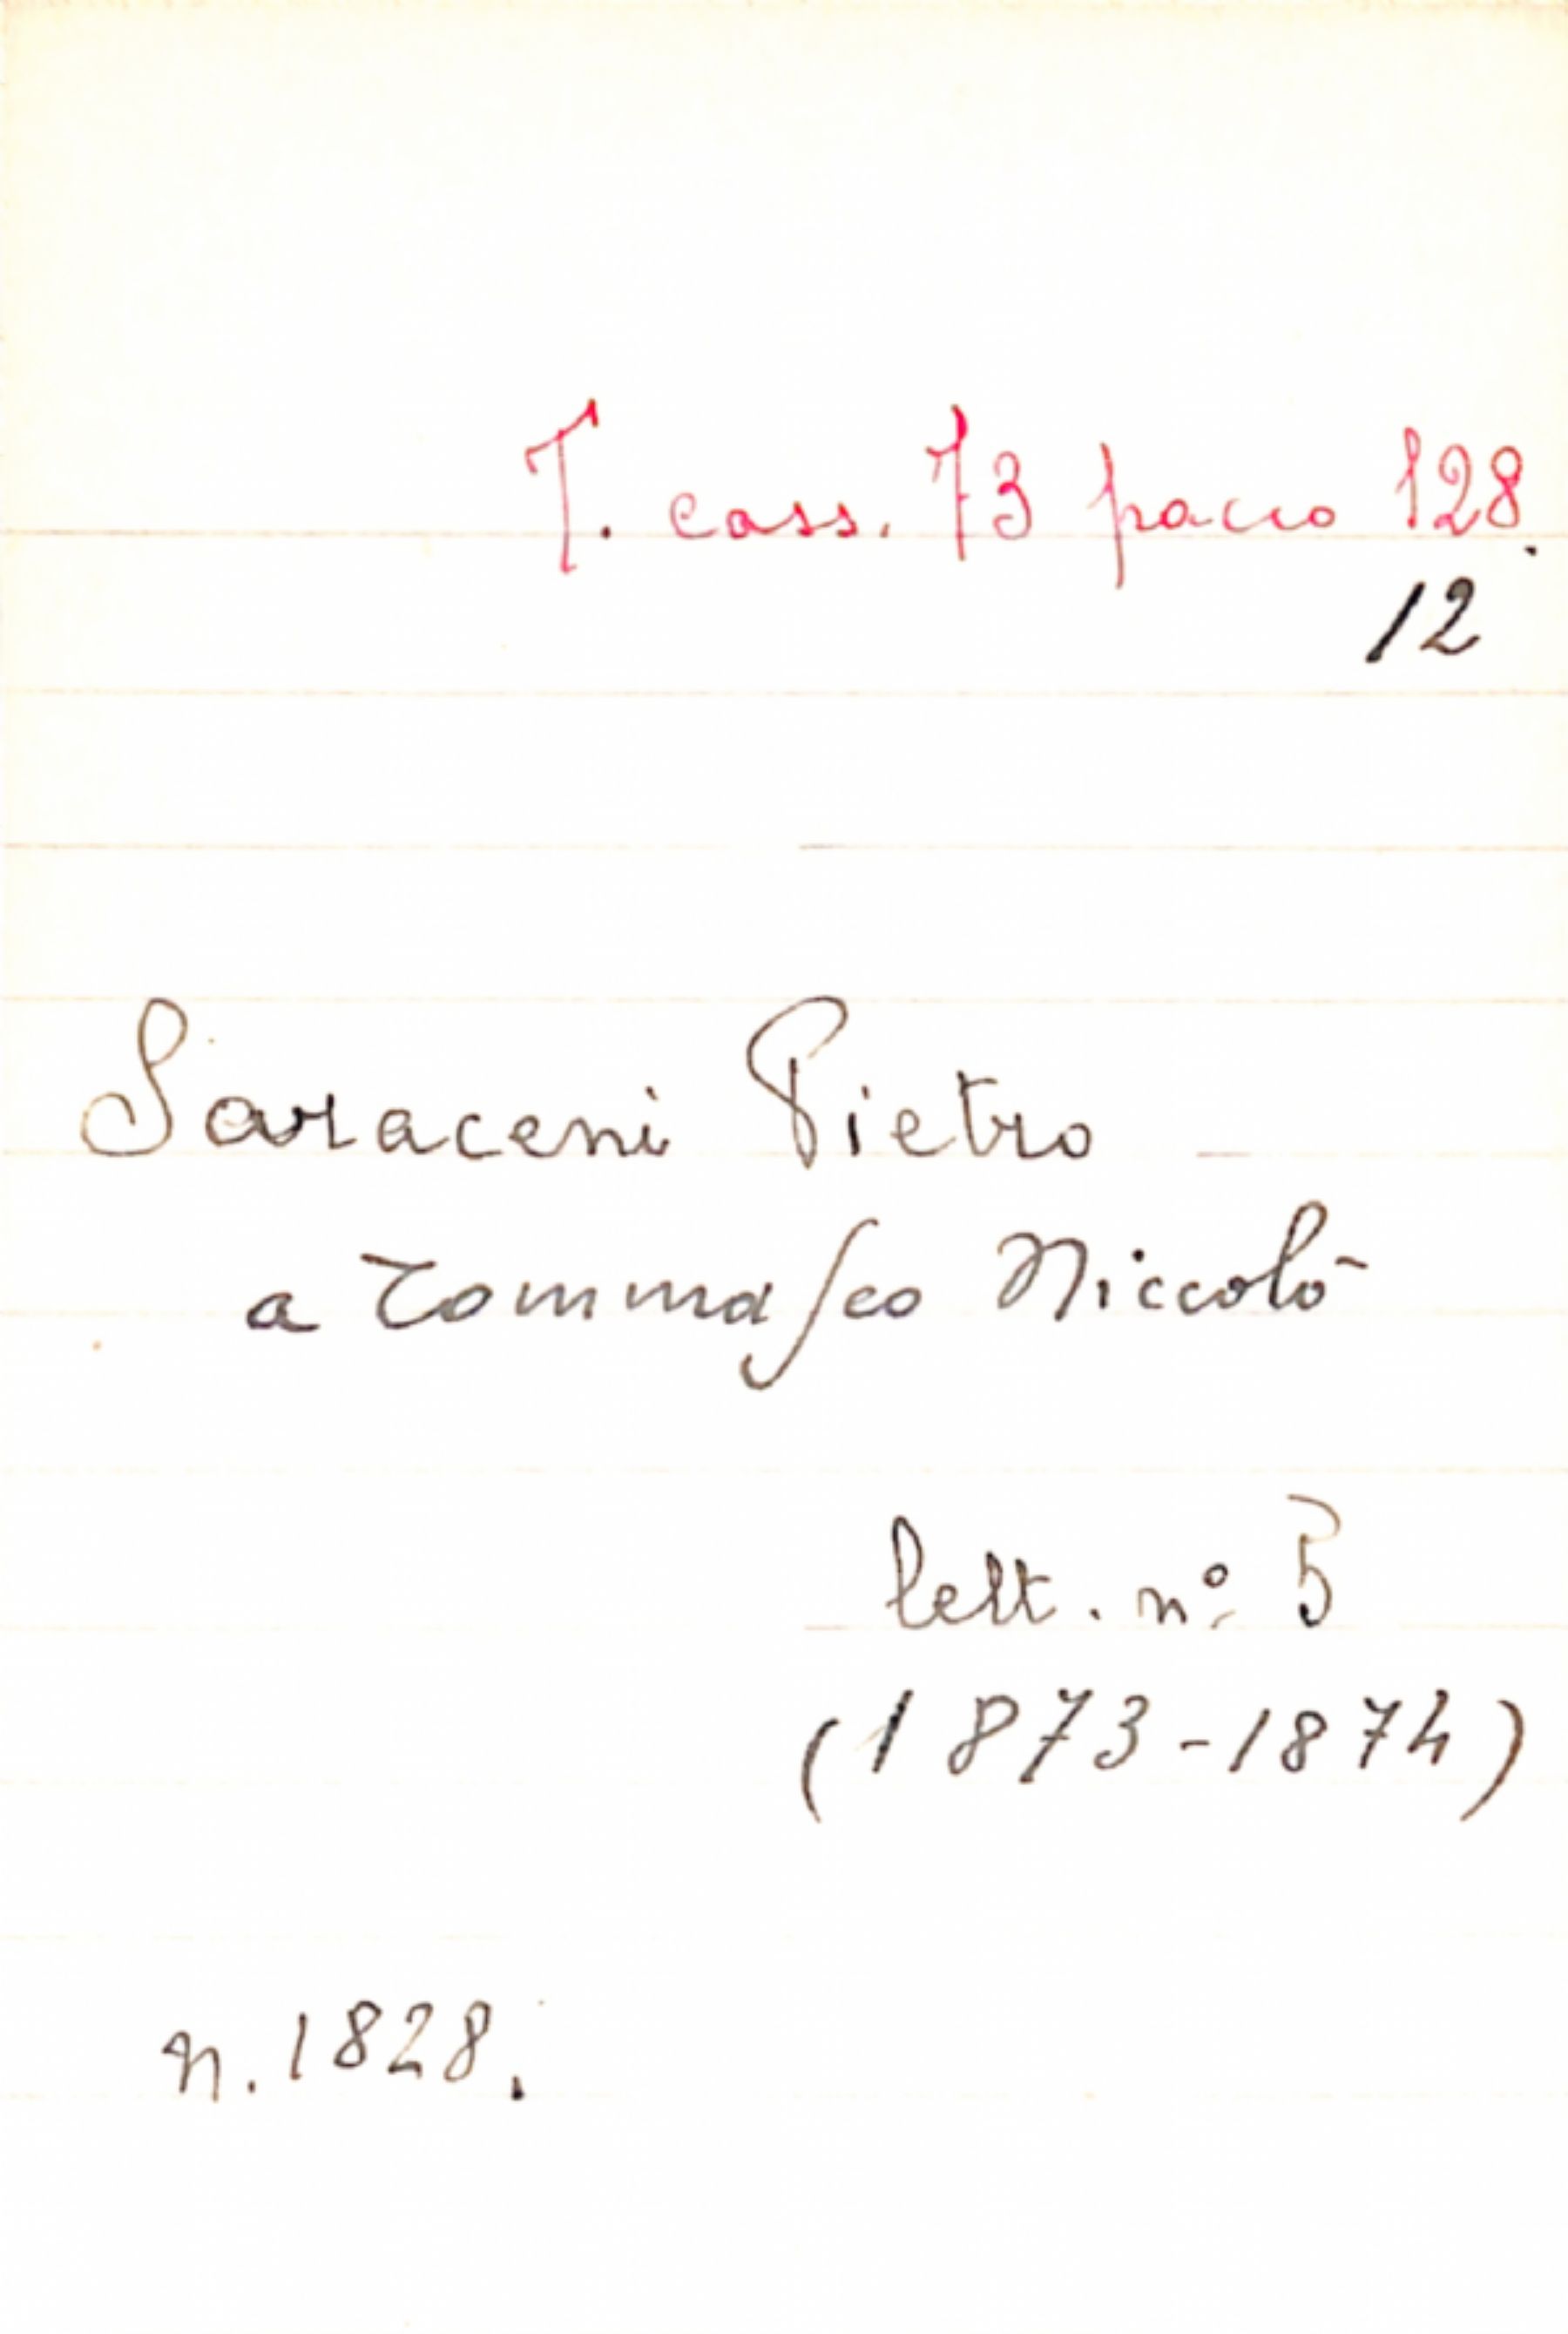 T. cass. 73 pacco 128.
12
Saraceni Pietro
a Tommaseo Niccolò
lett. nº 5
(1873-1874)
n. 1828.